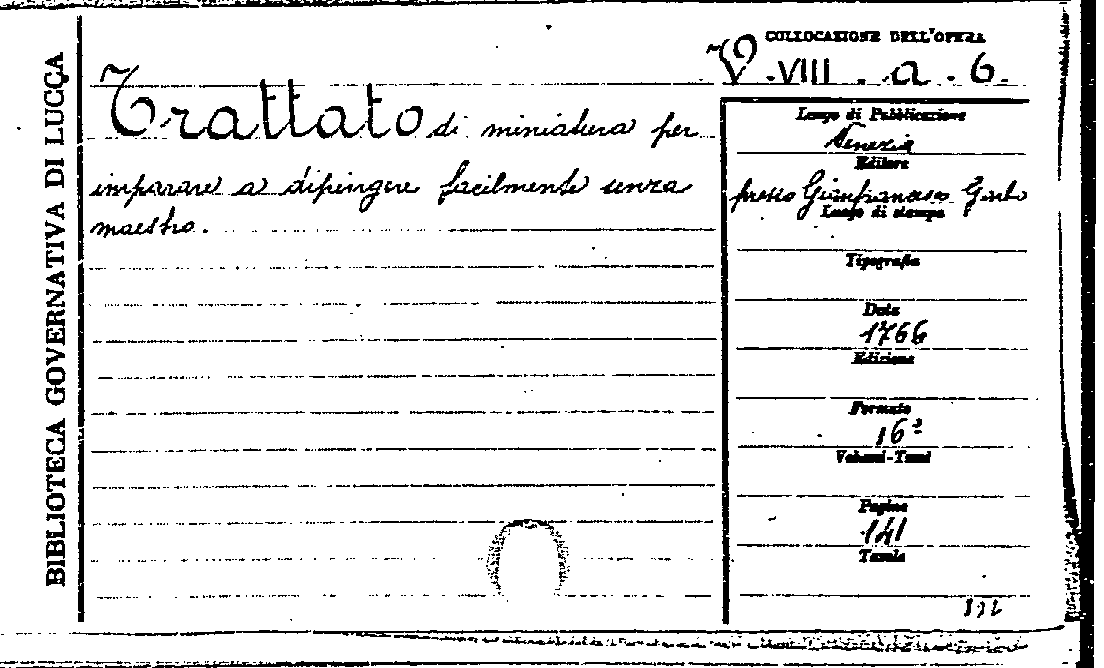 BIBLIOTECA GOVERNATIVA DI LUCCA
COLLOCAZIONE DELL'OPERA
V. VIII. a. 6.
Trattato di miniatura per
imparare a dipingere facilmente senza
maestro.
Luogo di Pubblicazione
Venezia
Editore
presso Gianfrancesco Garbo
Luogo di stampa
Tipografia
Data
1766
Edizione
Formato
16º
Volumi-Tomi
Pagine
141
Tavole